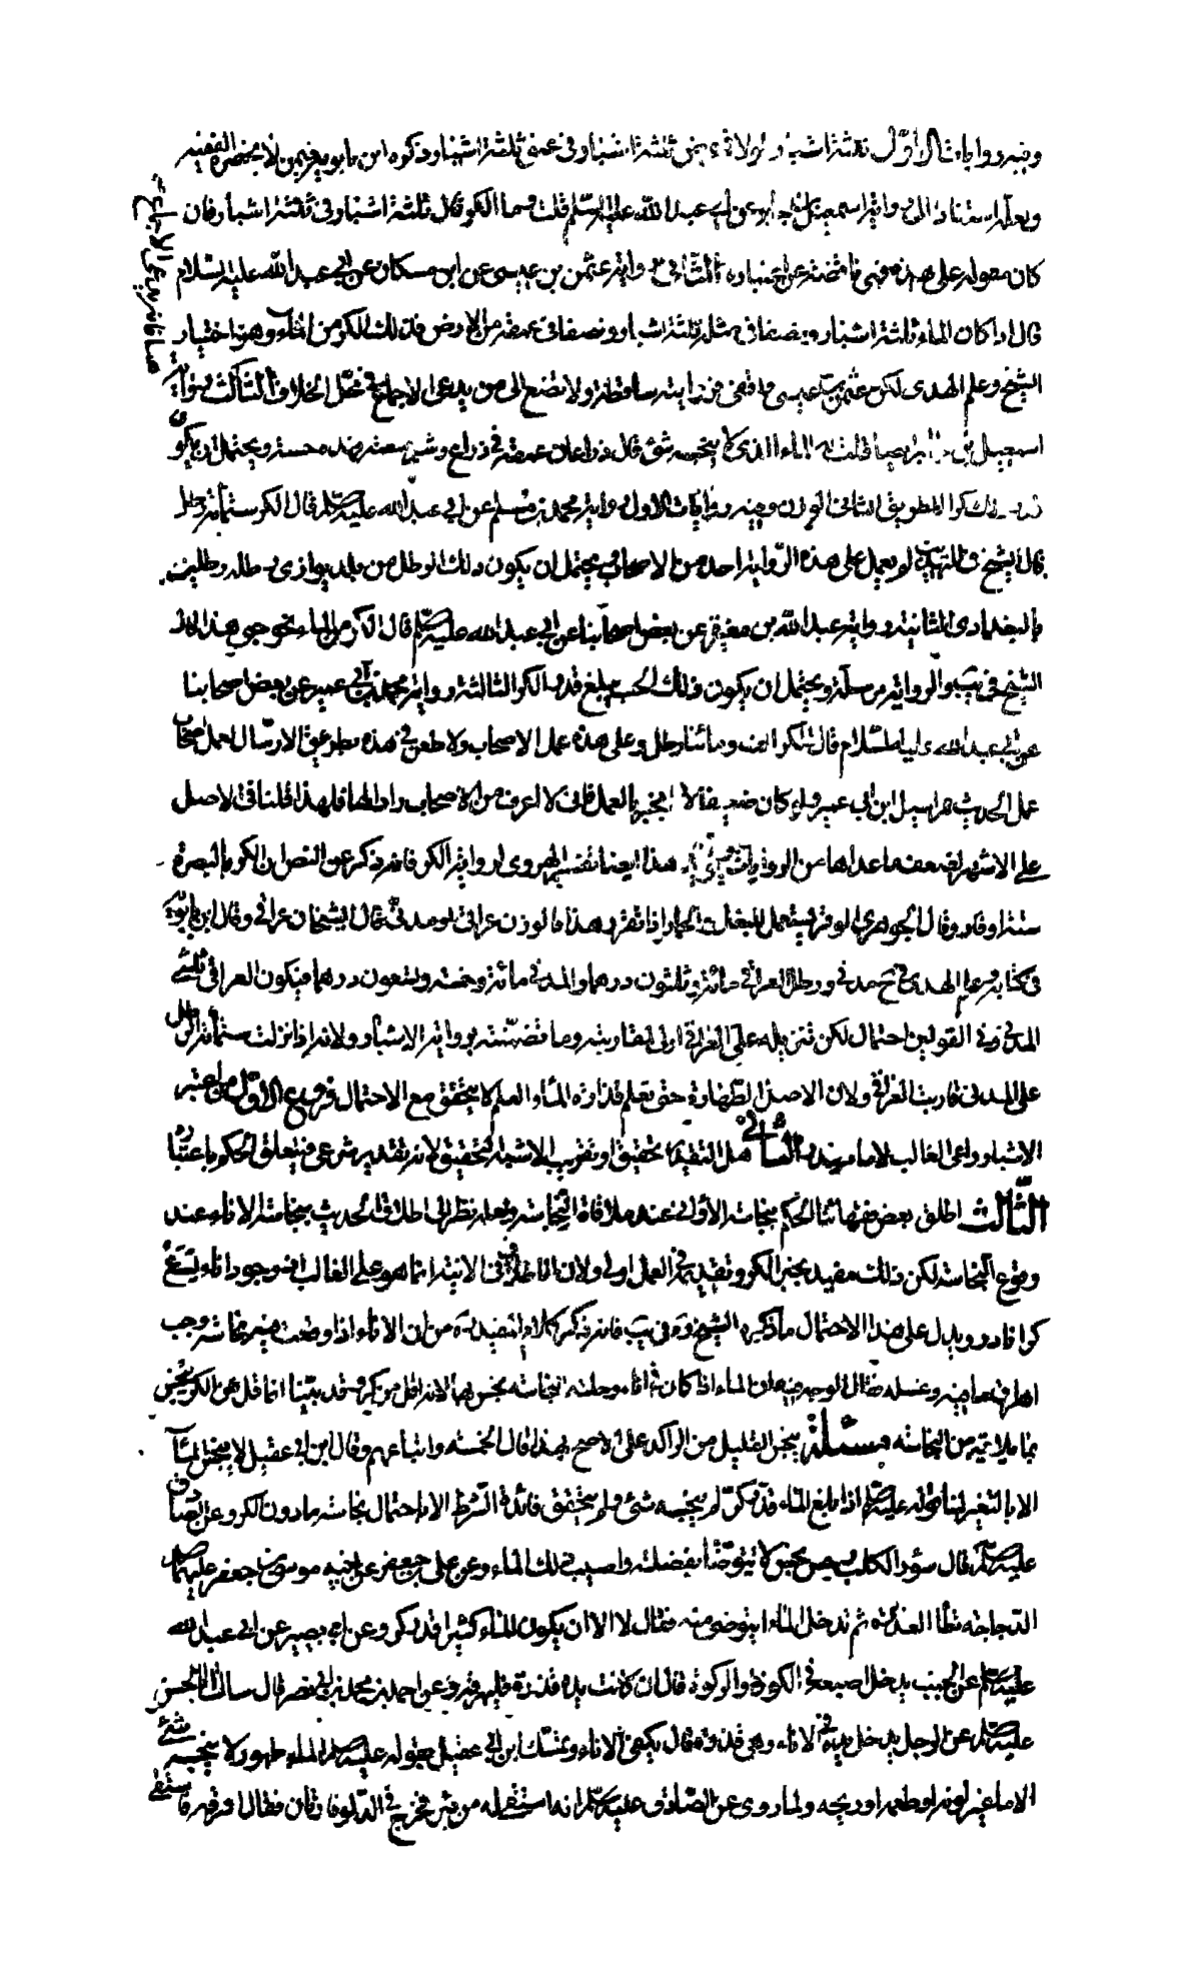 وفيه روايات الاول ثلثة اشبار طولا في عرض ثلثة اشبار في عمق ثلثة اشبار ذكره ابن بابويه فيمن لا يحضره الفقيه
ولعله استنادا الى رواية اسمعيل بن جابر عن ابي عبد الله عليه السلم قلت وما الكر قال ثلثة اشبار في ثلثة اشبار فان
كان معوله على هذه فهي ناقصة عن اعتباره الثاني رواية عثمن بن عيسى عن ابن مسكان عن ابي عبد الله عليه السلام
قال اذا كان الماء ثلثة اشبار ونصفا في مثله ثلثة اشبار ونصفا في عمقه من الارض فذلك الكر من الماء وهو اختيار
الشيخ وعلم الهدى لكن عثمن بن عيسى واقفي فروايته ساقطة ولا تصغ الى من يدعي الاجماع في محل الخلاف الثالث رواية
اسمعيل بن جابر ايضا قلت له الماء الذي لا ينجسه شئ قال ذراعان عمقه في ذراع وشبر سعته فهذه حسنة ويحتمل ان يكون
قدر ذلك كرا الطريق الثاني الوزن وفيه روايات الاولى رواية محمد بن مسلم عن ابي عبد الله عليه السلم قال الكر ستمائة رطل
قال الشيخ في التهذيب لم يعمل على هذه الرواية احد من الاصحاب ويحتمل ان يكون ذلك الرطل من بلد يوازي رطله رطلين
بالبغدادي الثانية رواية عبد الله بن مغيرة عن بعض اصحابنا عن ابي عبد الله عليه السلم قال الكر من الماء نحو حبي هذا قال
الشيخ في يب والرواية مرسلة ويحتمل ان يكون ذلك الحب يبلغ قدر الكر الثالثة رواية محمد بن ابي عمير عن بعض اصحابنا
عن ابي عبد الله عليه السلام قال الكر الف ومائتا رطل وعلى هذه عمل الاصحاب ولا طعن في هذه بطريق الارسال لعمل اصحاب
عمل الحديث مراسيل ابن ابي عمير ولو كان ضعيفا لا انجبر بالعمل فاني لا اعرف من الاصحاب رادا لها فلهذا قلنا في الاصل
على الاشهر لضعف ما عداها من الروايات هذا ايضا تفسير الهروي لرواية الكر فانه ذكر عن النضر ان الكر بالبصرة
ستة اوقار وقال الجوهري الوقر يستعمل للبغل والحمار اذا تقرر هذا فالوزن عراقي او مدني قال الشيخان عراقي وقال ابن بابويه
في كتابه وعلم الهدى في ح مدني ورطل العراقي مائة وثلثون درهما والمدني مائة وخمسة وتسعون درهما فيكون العراقي ثلثي
المدني وفي القولين احتمال لكن تنزيله على العراقي اولى لمقاربته وما تضمنته رواية الاشبار ولانه اذا نزلت ستمائة الرطل
على المدني قاربت العراقي ولان الاصل الطهارة حتى تعلم قذارة الماء والعلم لا يتحقق مع الاحتمال فروع الاول من اعتبر
الاشبار راعى الغالب لا ما يندر الثاني هل التقدير تحقيق او تقريب الاشبه التحقيق لانه تقدير شرعي فيتعلق الحكم باعتباره
الثالث اطلق بعض فقهائنا الحكم بنجاسة الاواني عند ملاقاة النجاسة ولعله نظر الى اطلاق الحديث بنجاسة الاناء عند
وقوع النجاسة لكن ذلك مقيد بخبر الكر وتقييده في العمل اولى ولان الاغلب في الانية انما هو على الغالب اذ وجود اناء يسع
كرا نادر ويدل على هذا الاحتمال ما ذكره الشيخ ره في يب فانه ذكر كلام المفيد ره من ان الاناء اذا وقعت فيه نجاسة وجب
اهراق ما فيه وغسله فقال الوجه فيه ان الماء اذا كان في اناء وحلته النجاسة نجس بها لانه اقل من كر وقد بينا ان ما قل عن الكر ينجس
بما يلاقيه من النجاسة مسئلة ينجس القليل من الراكد على الاصح وبهذا قال الخمسة واتباعهم وقال ابن ابي عقيل لا ينجس الماء
الا بالتغير لنا قوله عليه السلم اذا بلغ الماء قدر كر لم ينجسه شئ ولم يتحقق فائدة الشرط الا باحتمال نجاسة ما دون الكر وعن الصادق
عليه السلم قال سؤر الكلب رجس نجس لا تتوضأ بفضله واصبب ذلك الماء وعن علي بن جعفر عن اخيه موسى بن جعفر عليهما السلم
الدجاجة تطأ العذرة ثم تدخل الماء ايتوضى منه فقال لا الا ان يكون الماء كثيرا قدر كر وعن ابي بصير عن ابي عبد الله
عليه السلم عن الجنب يدخل اصبعه في الكوز والركوة قال ان كانت يده قذرة فليهرقه وعن احمد بن محمد بن ابي نصر قال سالت ابا الحسن
عليه السلم عن الرجل يدخل يده في الاناء وهي قذرة فقال يكفئ الاناء وتمسك ابن ابي عقيل بقوله عليه السلم الماء طهور لا ينجسه شئ
الا ما غير لونه او طعمه او ريحه ولما روى عن الصادق عليه السلم انه استقى له من بئر فخرج في الدلو فارتان فقال ارقه فاستقى